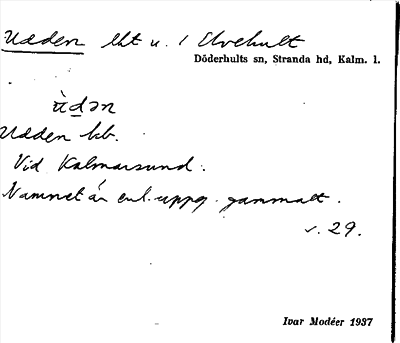 Udden lht u. 1 Elvehult
Döderhults sn, Stranda hd, Kalm. l.
ùdən
Udden kb.
Vid Kalmarsund.
Namnet är enl. uppg. gammalt.
s. 29.
Ivar Modéer 1937